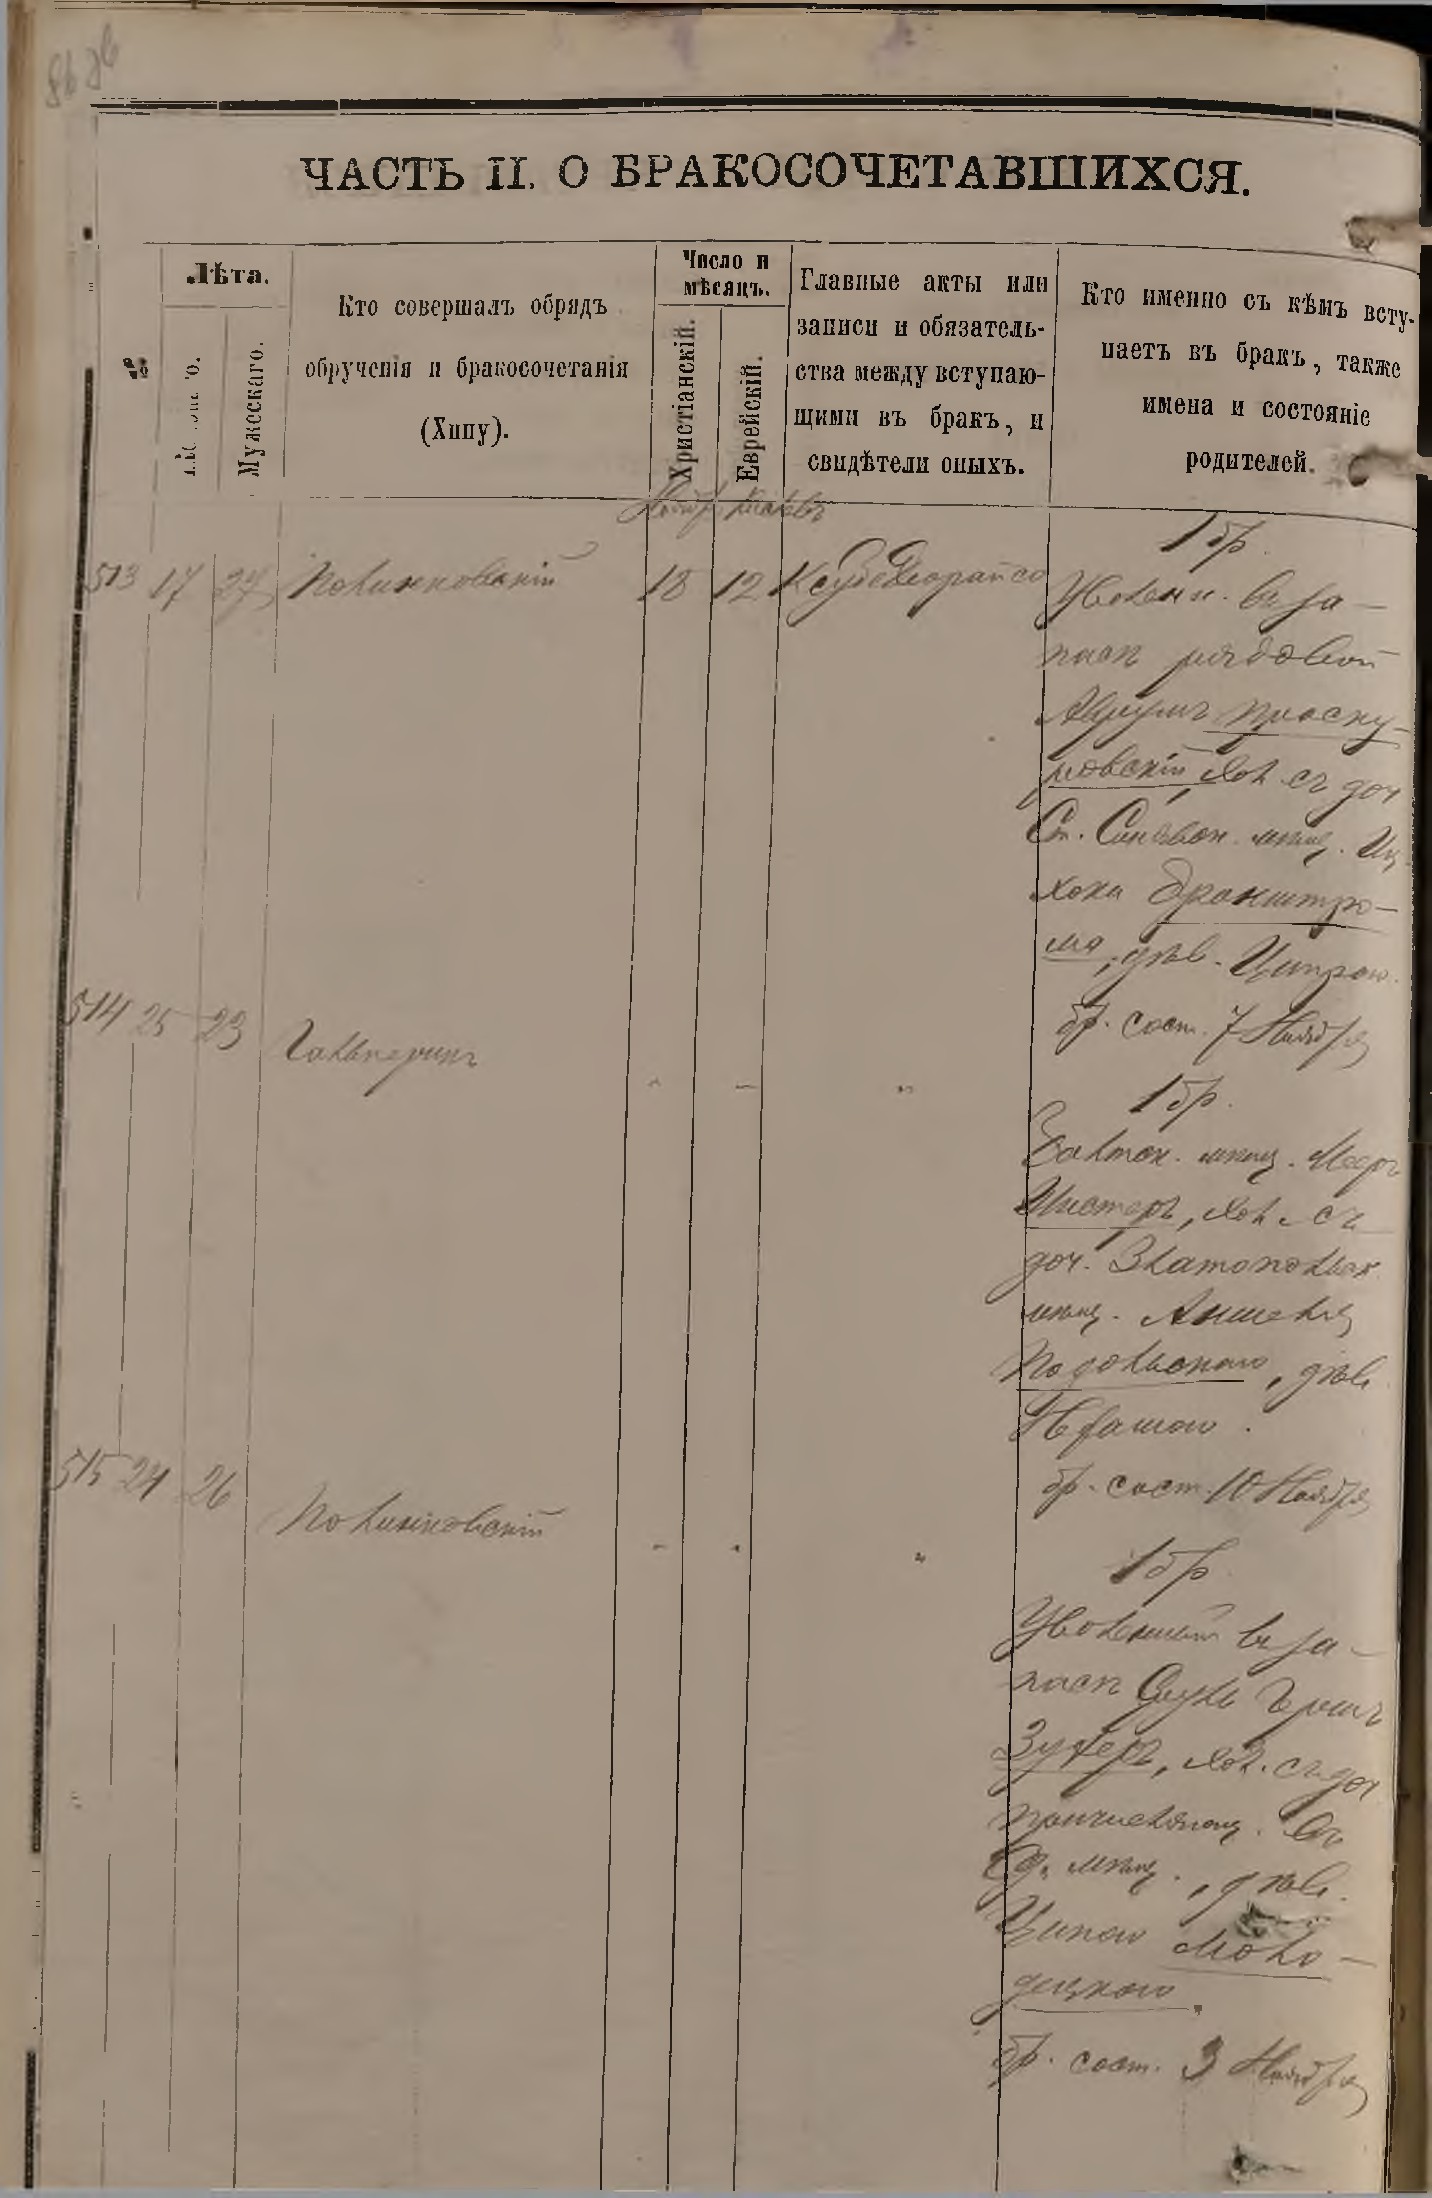 ЧАСТЬ II. О БРАКОСОЧЕТАВШИХСЯ.
№
Лѣта.
Мужескаго.
Кто совершалъ обрядъ
обрученія и бракосочетанія
(Хипу).
Число и
мѣсяцъ.
Христіанскій.
Еврейскій.
Главные акты или
записи и обязатель-
ства между вступаю-
щими въ бракъ, и
свидѣтели оныхъ.
Кто именно съ кѣмъ всту-
паетъ въ бракъ, также
имена и состояніе
родителей.
Ноябр. Кислевъ
513 17 27 Полинковскій 18 12
1 бр.
Уволен. въ за-
пасъ рядовой
Аврумъ Проску-
ровскій, хол. съ доч
мѣщ. Иц
хока Бронштро-
ма, дѣв. Ципрою.
бр. сост. 7 Ноября
514 25 23 Гальперинъ
1 бр.
Балтск. мѣщ. Мееръ
Нистеръ, хол. съ
доч. Златопольск.
мѣщ. Аншеля
Подольскаго, дѣв.
бр. сост. 10 Ноября
515 24 26 Полинковскій
1 бр.
Уволенный въ за-
пасъ Герш
Зукеръ, хол. съ доч
мѣщ., дѣв.
Ципою Моло-
децкою.
бр. сост. 3 Ноября